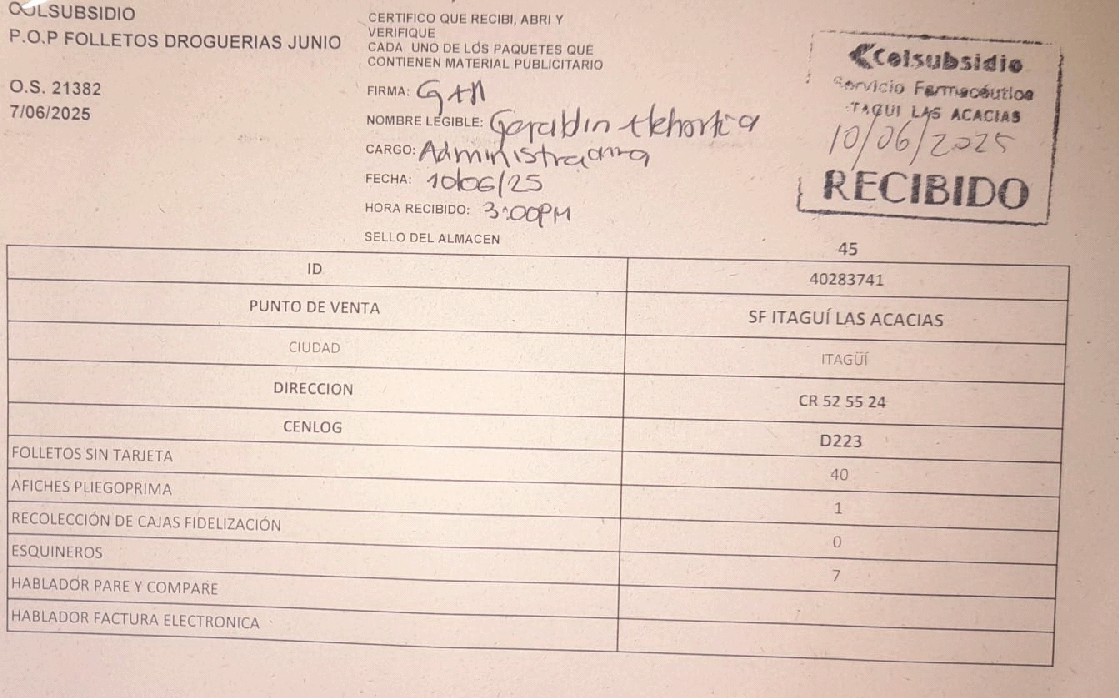 COLSUBSIDIO
P.O.P FOLLETOS DROGUERIAS JUNIO
O.S. 21382
7/06/2025
CERTIFICO QUE RECIBI, ABRI Y
VERIFIQUE
CADA UNO DE LOS PAQUETES QUE
CONTIENEN MATERIAL PUBLICITARIO
FIRMA:
NOMBRE LEGIBLE: Geraldin
CARGO: Administradora
FECHA: 10/06/25
HORA RECIBIDO: 3:00PM
SELLO DEL ALMACEN
Colsubsidio
Servicio Farmacéutico
ITAGUI LAS ACACIAS
10/06/2025
RECIBIDO
45
ID 40283741
PUNTO DE VENTA SF ITAGUÍ LAS ACACIAS
CIUDAD ITAGÜÍ
DIRECCION CR 52 55 24
CENLOG D223
FOLLETOS SIN TARJETA 40
AFICHES PLIEGOPRIMA 1
RECOLECCIÓN DE CAJAS FIDELIZACIÓN 0
ESQUINEROS 7
HABLADOR PARE Y COMPARE
HABLADOR FACTURA ELECTRONICA